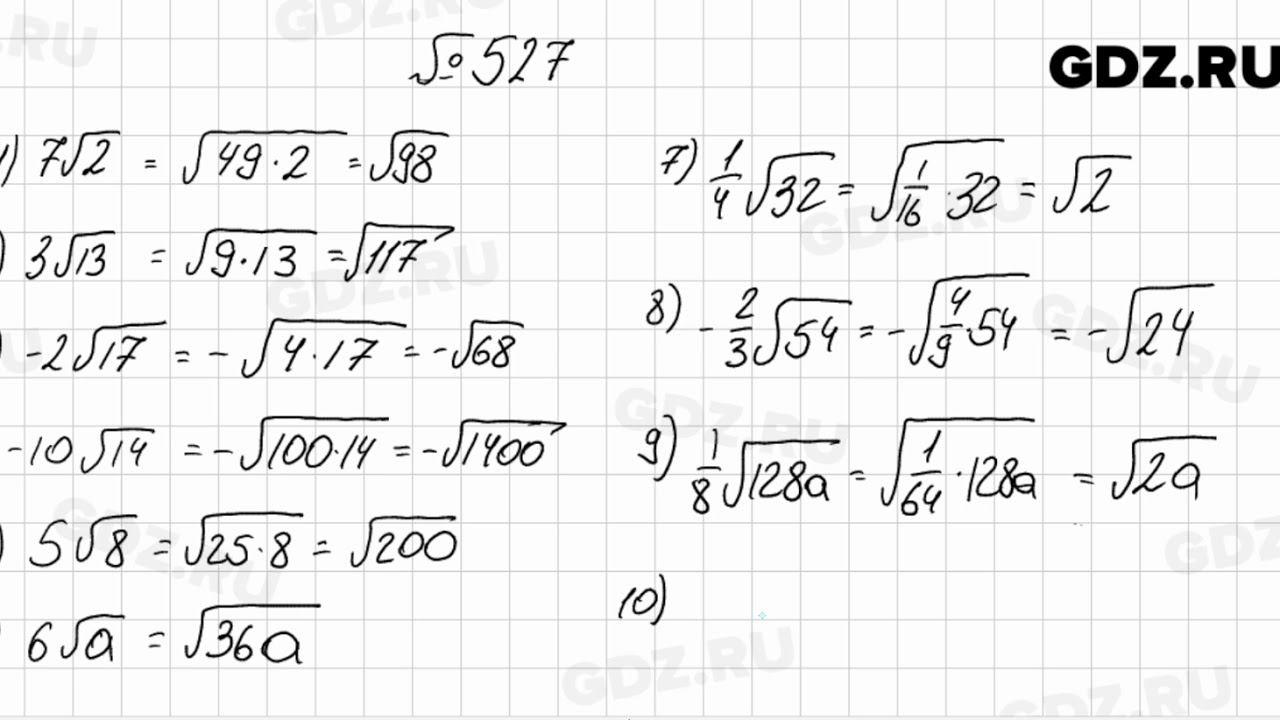 №527
GDZ.RU
1) 7√2 = √49·2 = √98
) 3√13 = √9·13 = √117
) -2√17 = -√4·17 = -√68
-10√14 = -√100·14 = -√1400
) 5√8 = √25·8 = √200
6√a = √36a
7) 1/4 √32 = √1/16 ·32 = √2
8) -2/3 √54 = -√4/9 ·54 = -√24
9) 1/8 √128a = √1/64 ·128a = √2a
10)